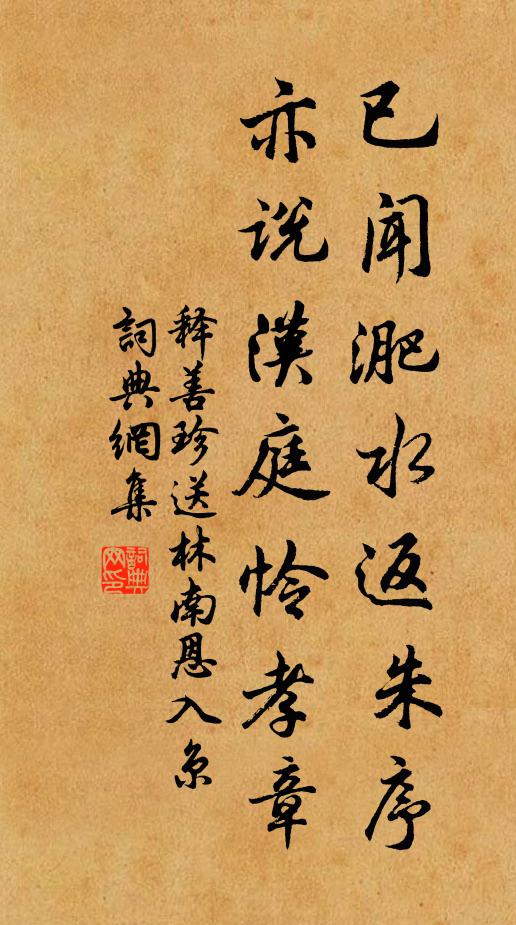 已闻淝水返朱序
亦说漢庭怜孝章
释善珍送林南恩入京
詞典網集
詞典网印